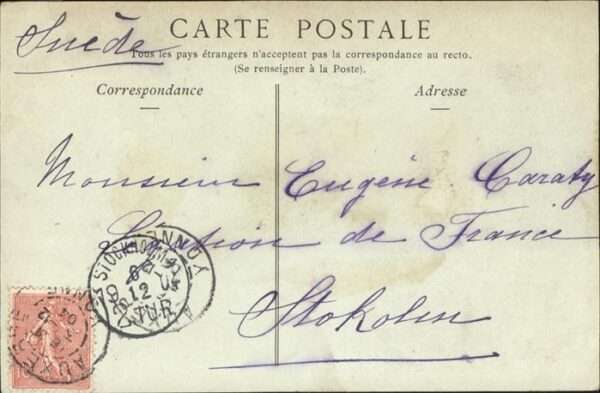 Suède
CARTE POSTALE
Tous les pays étrangers n'acceptent pas la correspondance au recto.
(Se renseigner à la Poste).
Correspondance
Adresse
Monsieur Eugène Caraty
de France
Stokolm
STOCKHOLM
12
TUR